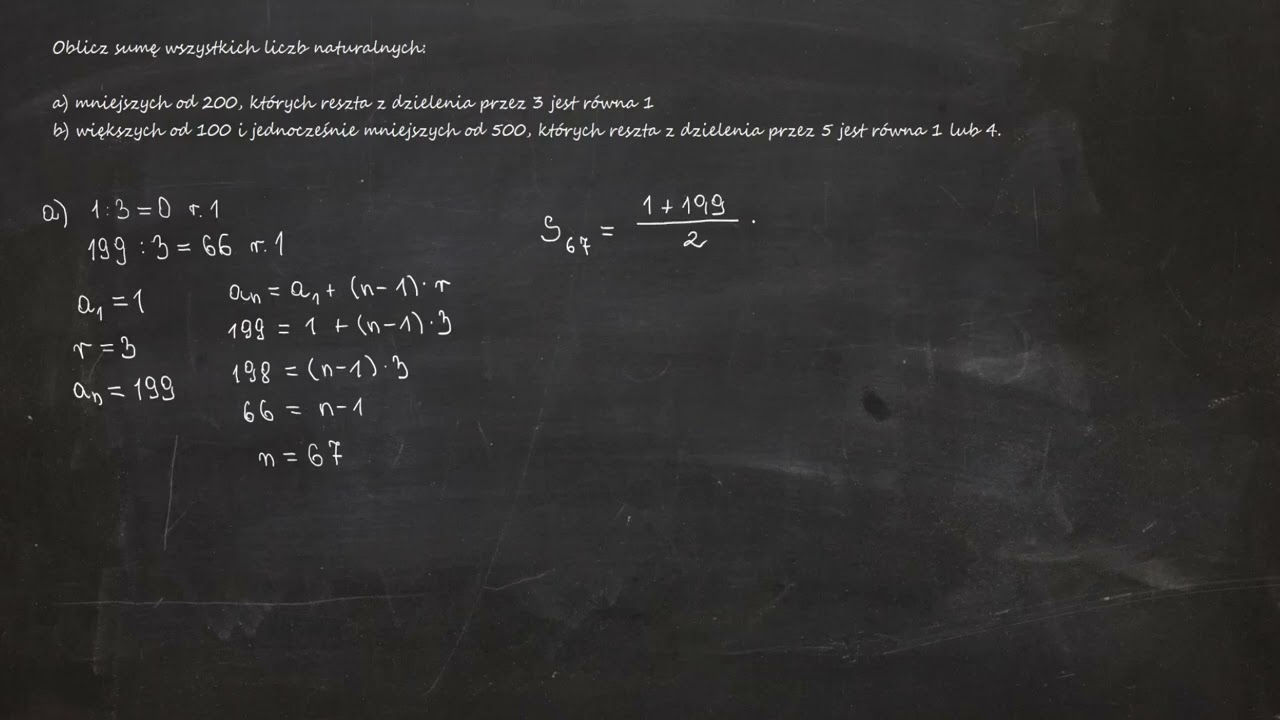 Oblicz sumę wszystkich liczb naturalnych:
a) mniejszych od 200, których reszta z dzielenia przez 3 jest równa 1
b) większych od 100 i jednocześnie mniejszych od 500, których reszta z dzielenia przez 5 jest równa 1 lub 4.
a) 1:3=0 r.1
199:3=66 r.1
a₁=1
r=3
aₙ=199
aₙ=a₁+(n-1)·r
199=1+(n-1)·3
198=(n-1)·3
66=n-1
n=67
S₆₇=(1+199)/2 ·